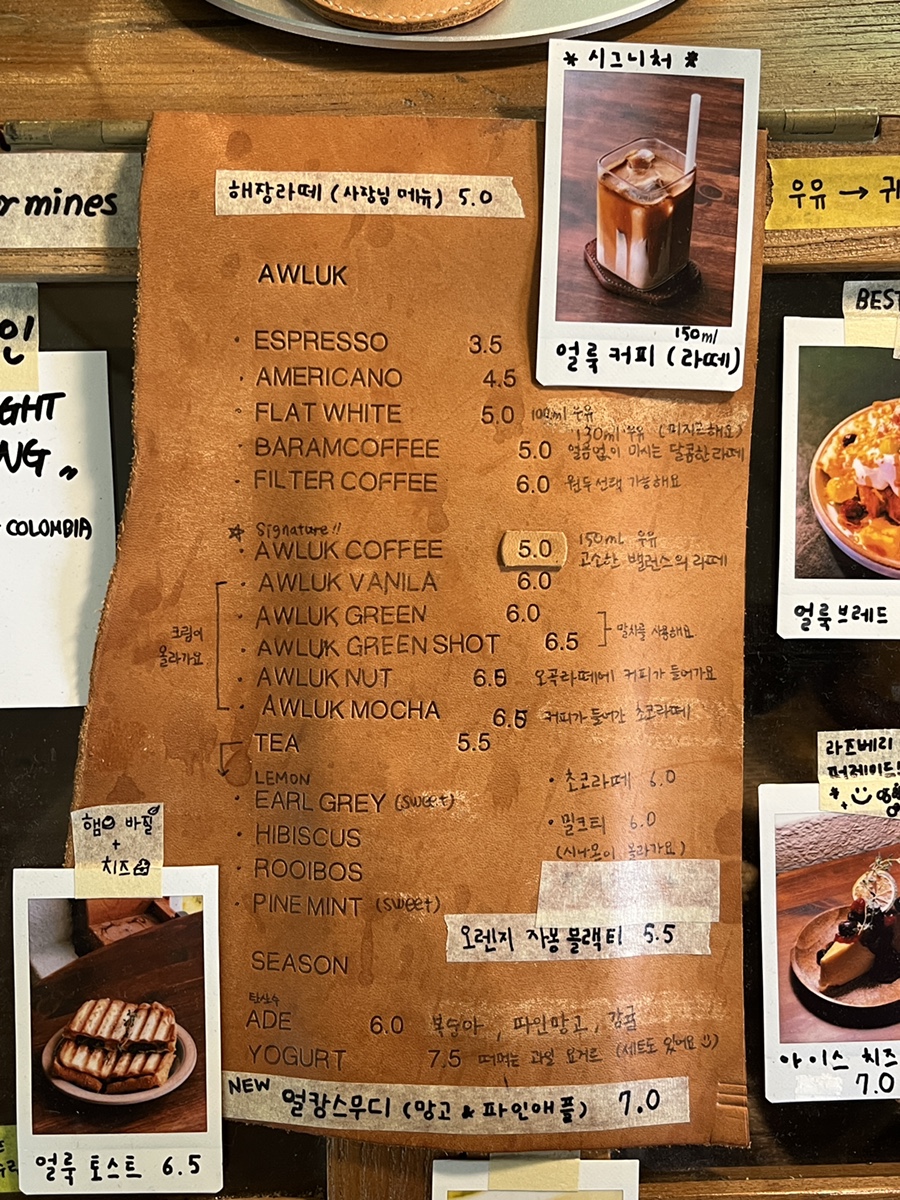 * 시그니처 *
150ml
얼룩 커피 (라떼)
해장라떼 (사장님 메뉴) 5.0
AWLUK
· ESPRESSO 3.5
· AMERICANO 4.5
· FLAT WHITE 5.0 100ml 우유
· BARAMCOFFEE 5.0 130ml 우유 (미지근해요)
얼음없이 마시는 달콤한 라떼
· FILTER COFFEE 6.0 원두선택 가능해요
☆ Signature!!
AWLUK COFFEE 5.0 150ml 우유
고소한 밸런스의 라떼
· AWLUK VANILA 6.0
· AWLUK GREEN 6.0
· AWLUK GREEN SHOT 6.5
말차를 사용해요
· AWLUK NUT 6.5 오곡라떼에 커피가 들어가요
· AWLUK MOCHA 6.5 커피가 들어간 초코라떼
크림이
올라가요
TEA 5.5
· LEMON
· EARL GREY (sweet)
· HIBISCUS
· ROOIBOS
· PINE MINT (sweet)
· 초코라떼 6.0
· 밀크티 6.0
(시나몬이 올라가요)
오렌지 자몽 블랙티 5.5
SEASON
탄산수
ADE 6.0 복숭아, 파인망고, 감귤
YOGURT 7.5 떠먹는 과일 요거트 (세트도 있어요)
NEW 얼캉스무디 (망고 & 파인애플) 7.0
r mines
인
GHT
NG „
COLOMBIA
햄 바질
+
치즈
얼룩 토스트 6.5
우유 → 귀
BEST
얼룩브레드
라즈베리
퍼레이드
아이스 치즈
7.0